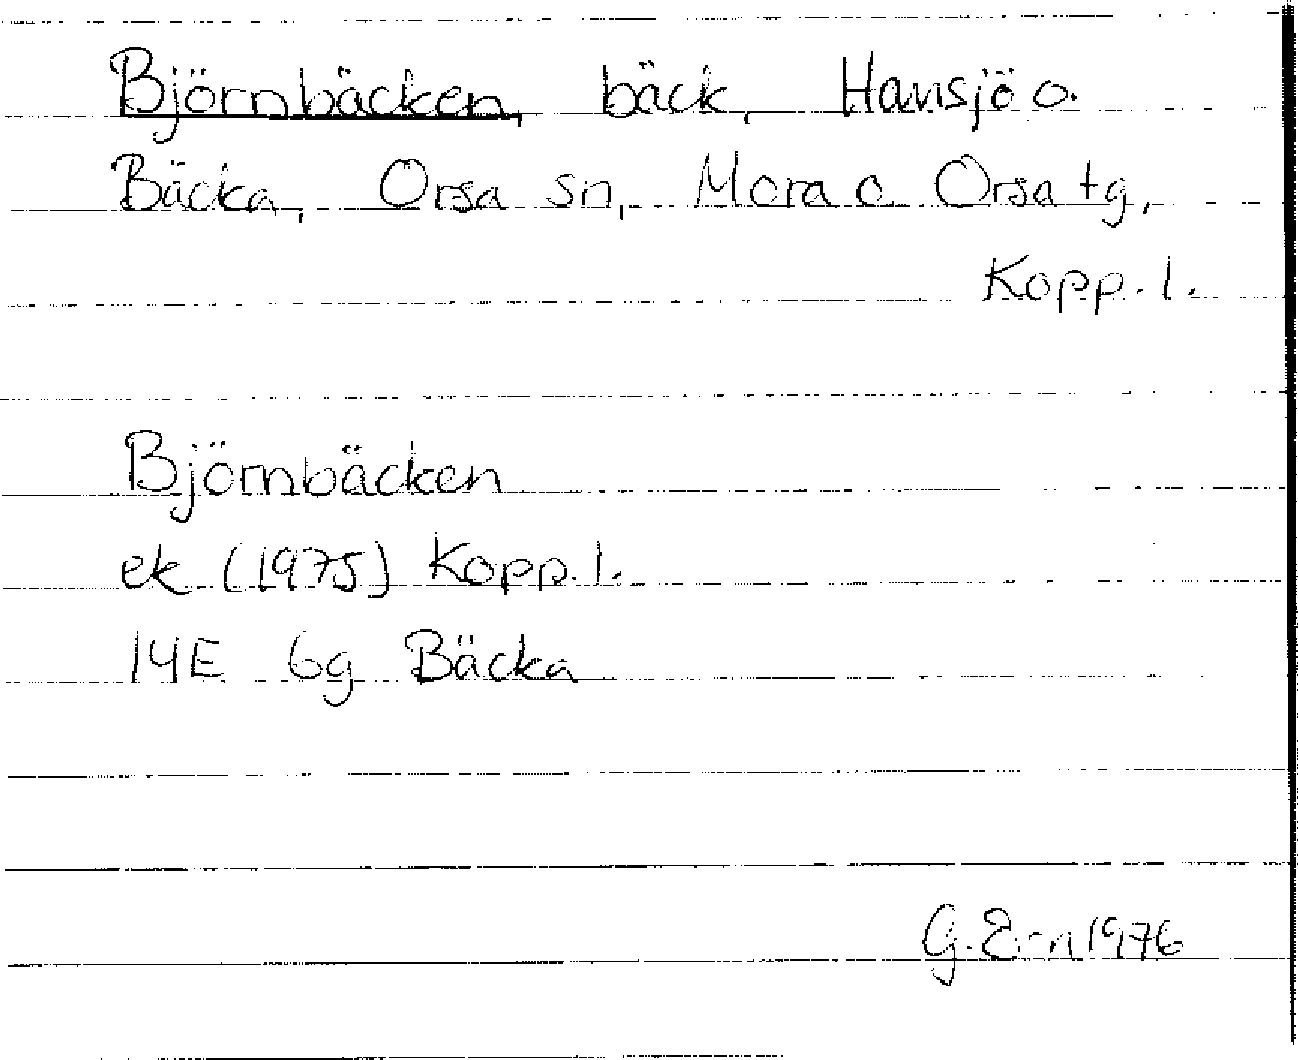 Björnbäcken, bäck, Hansjö o.
Bäcka, Orsa sn, Mora o Orsa tg,
Kopp. l.
Björnbäcken
ek (1975) Kopp. l.
14E 6g Bäcka
G. Ern 1976